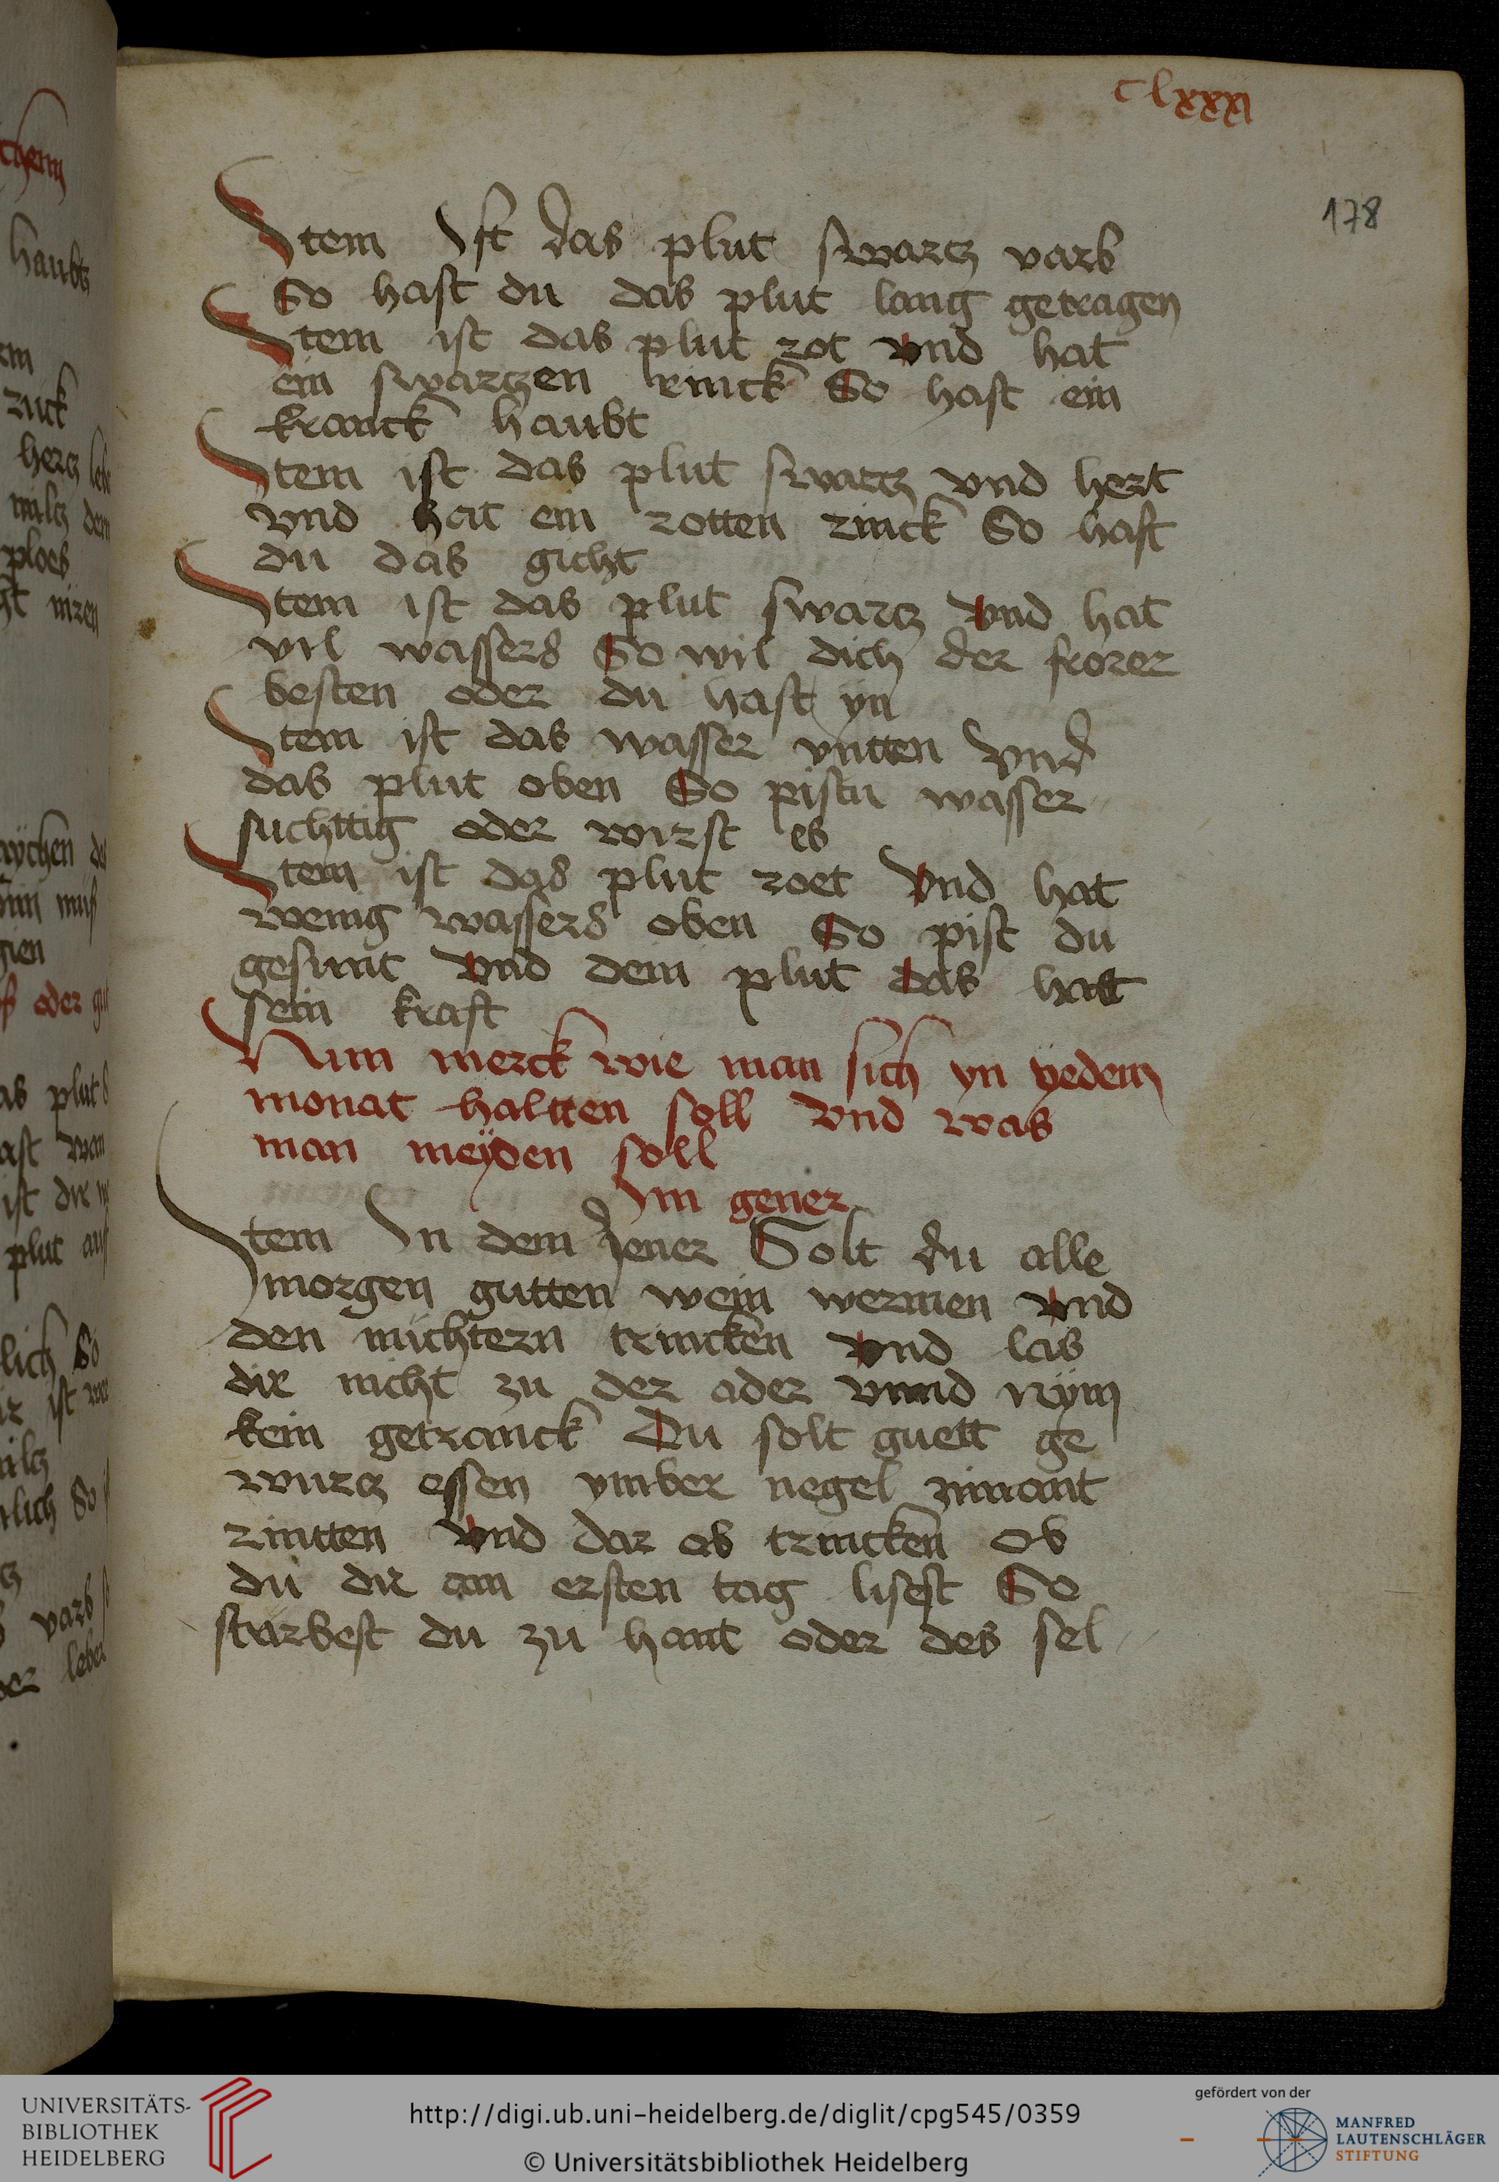 clxxxi
178
Item Ist das plut swartz varb
So hast du das plut lang getragen
Item ist das plut rot vnd hat
ein swartzen rinck So hast ein
kranck haubt
Item ist das plut swartz vnd hert
vnd hat ein rotten rinck So hast
du das gicht
Item ist das plut swartz vnd hat
vil wassers So wil dich der frorer
besten oder du hast yn
Item ist das wasser vntten Vnd
das plut oben So pistu wasser
suchttig oder wirst es
Item ist das plut roet Vnd hat
wenig wassers oben So pist du
gesunt vnd dein plut das hatt
sein kraft
Nun merck wie man sich yn yedem
monat haltten soll vnd was
man meyden soll
Im gener
Item In dem Jener Solt du alle
morgen gutten wein wermen vnd
den nuchtern trincken vnd las
dir nicht zu der ader vnnd nym
kein getranck Du solt guett ge
wurtz essen ymber negel zimant
rintten vnd dar ob trincken Ob
du dir am ersten tag lisest So
sturbest du zu hant oder des sel
haubtz
plut
oder
varb
http://digi.ub.uni-heidelberg.de/diglit/cpg545/0359
© Universitätsbibliothek Heidelberg
UNIVERSITÄTS-
BIBLIOTHEK
HEIDELBERG
gefördert von der
MANFRED
LAUTENSCHLÄGER
STIFTUNG